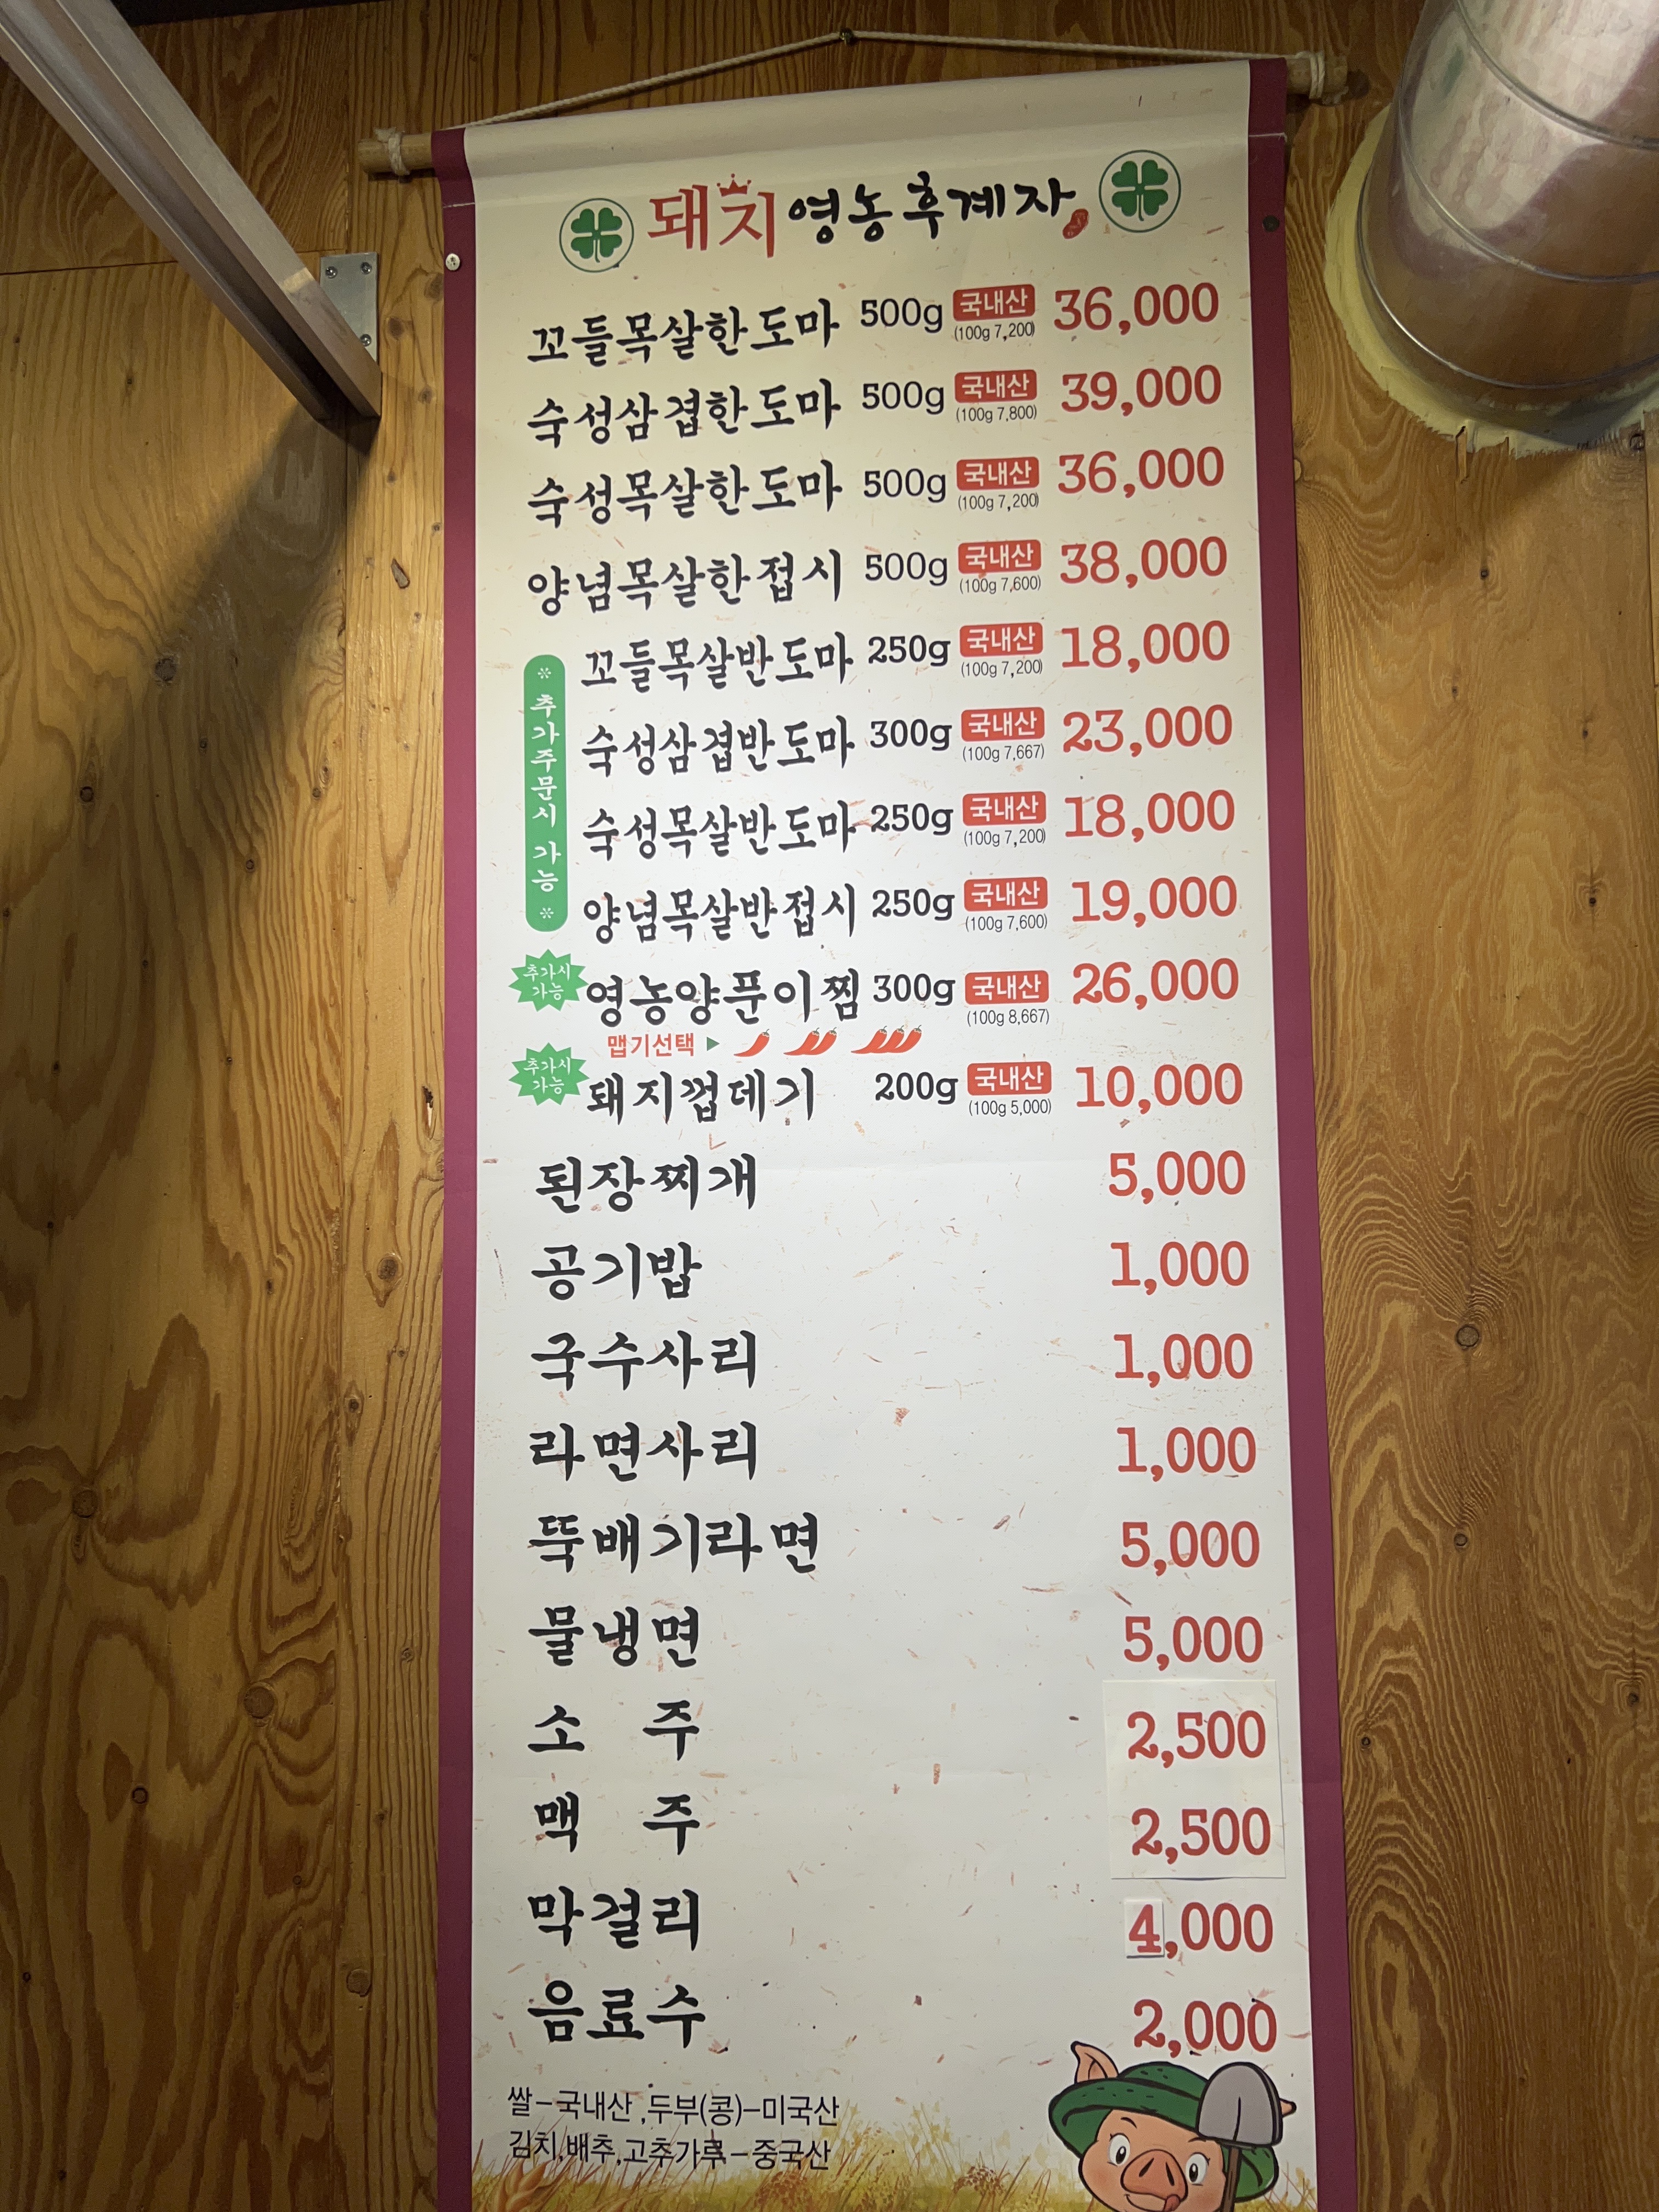 돼지영농후계자
꼬들목살한도마 500g 국내산 (100g 7,200) 36,000
숙성삼겹한도마 500g 국내산 (100g 7,800) 39,000
숙성목살한도마 500g 국내산 (100g 7,200) 36,000
양념목살한접시 500g 국내산 (100g 7,600) 38,000
※ 추가주문시 가능 ※
꼬들목살반도마 250g 국내산 (100g 7,200) 18,000
숙성삼겹반도마 300g 국내산 (100g 7,667) 23,000
숙성목살반도마 250g 국내산 (100g 7,200) 18,000
양념목살반접시 250g 국내산 (100g 7,600) 19,000
추가시 가능 영농양푼이찜 300g 국내산 (100g 8,667) 26,000
맵기선택 ▶
추가시 가능 돼지껍데기 200g 국내산 (100g 5,000) 10,000
된장찌개 5,000
공기밥 1,000
국수사리 1,000
라면사리 1,000
뚝배기라면 5,000
물냉면 5,000
소 주 2,500
맥 주 2,500
막걸리 4,000
음료수 2,000
쌀-국내산 ,두부(콩)-미국산
김치,배추,고추가루-중국산